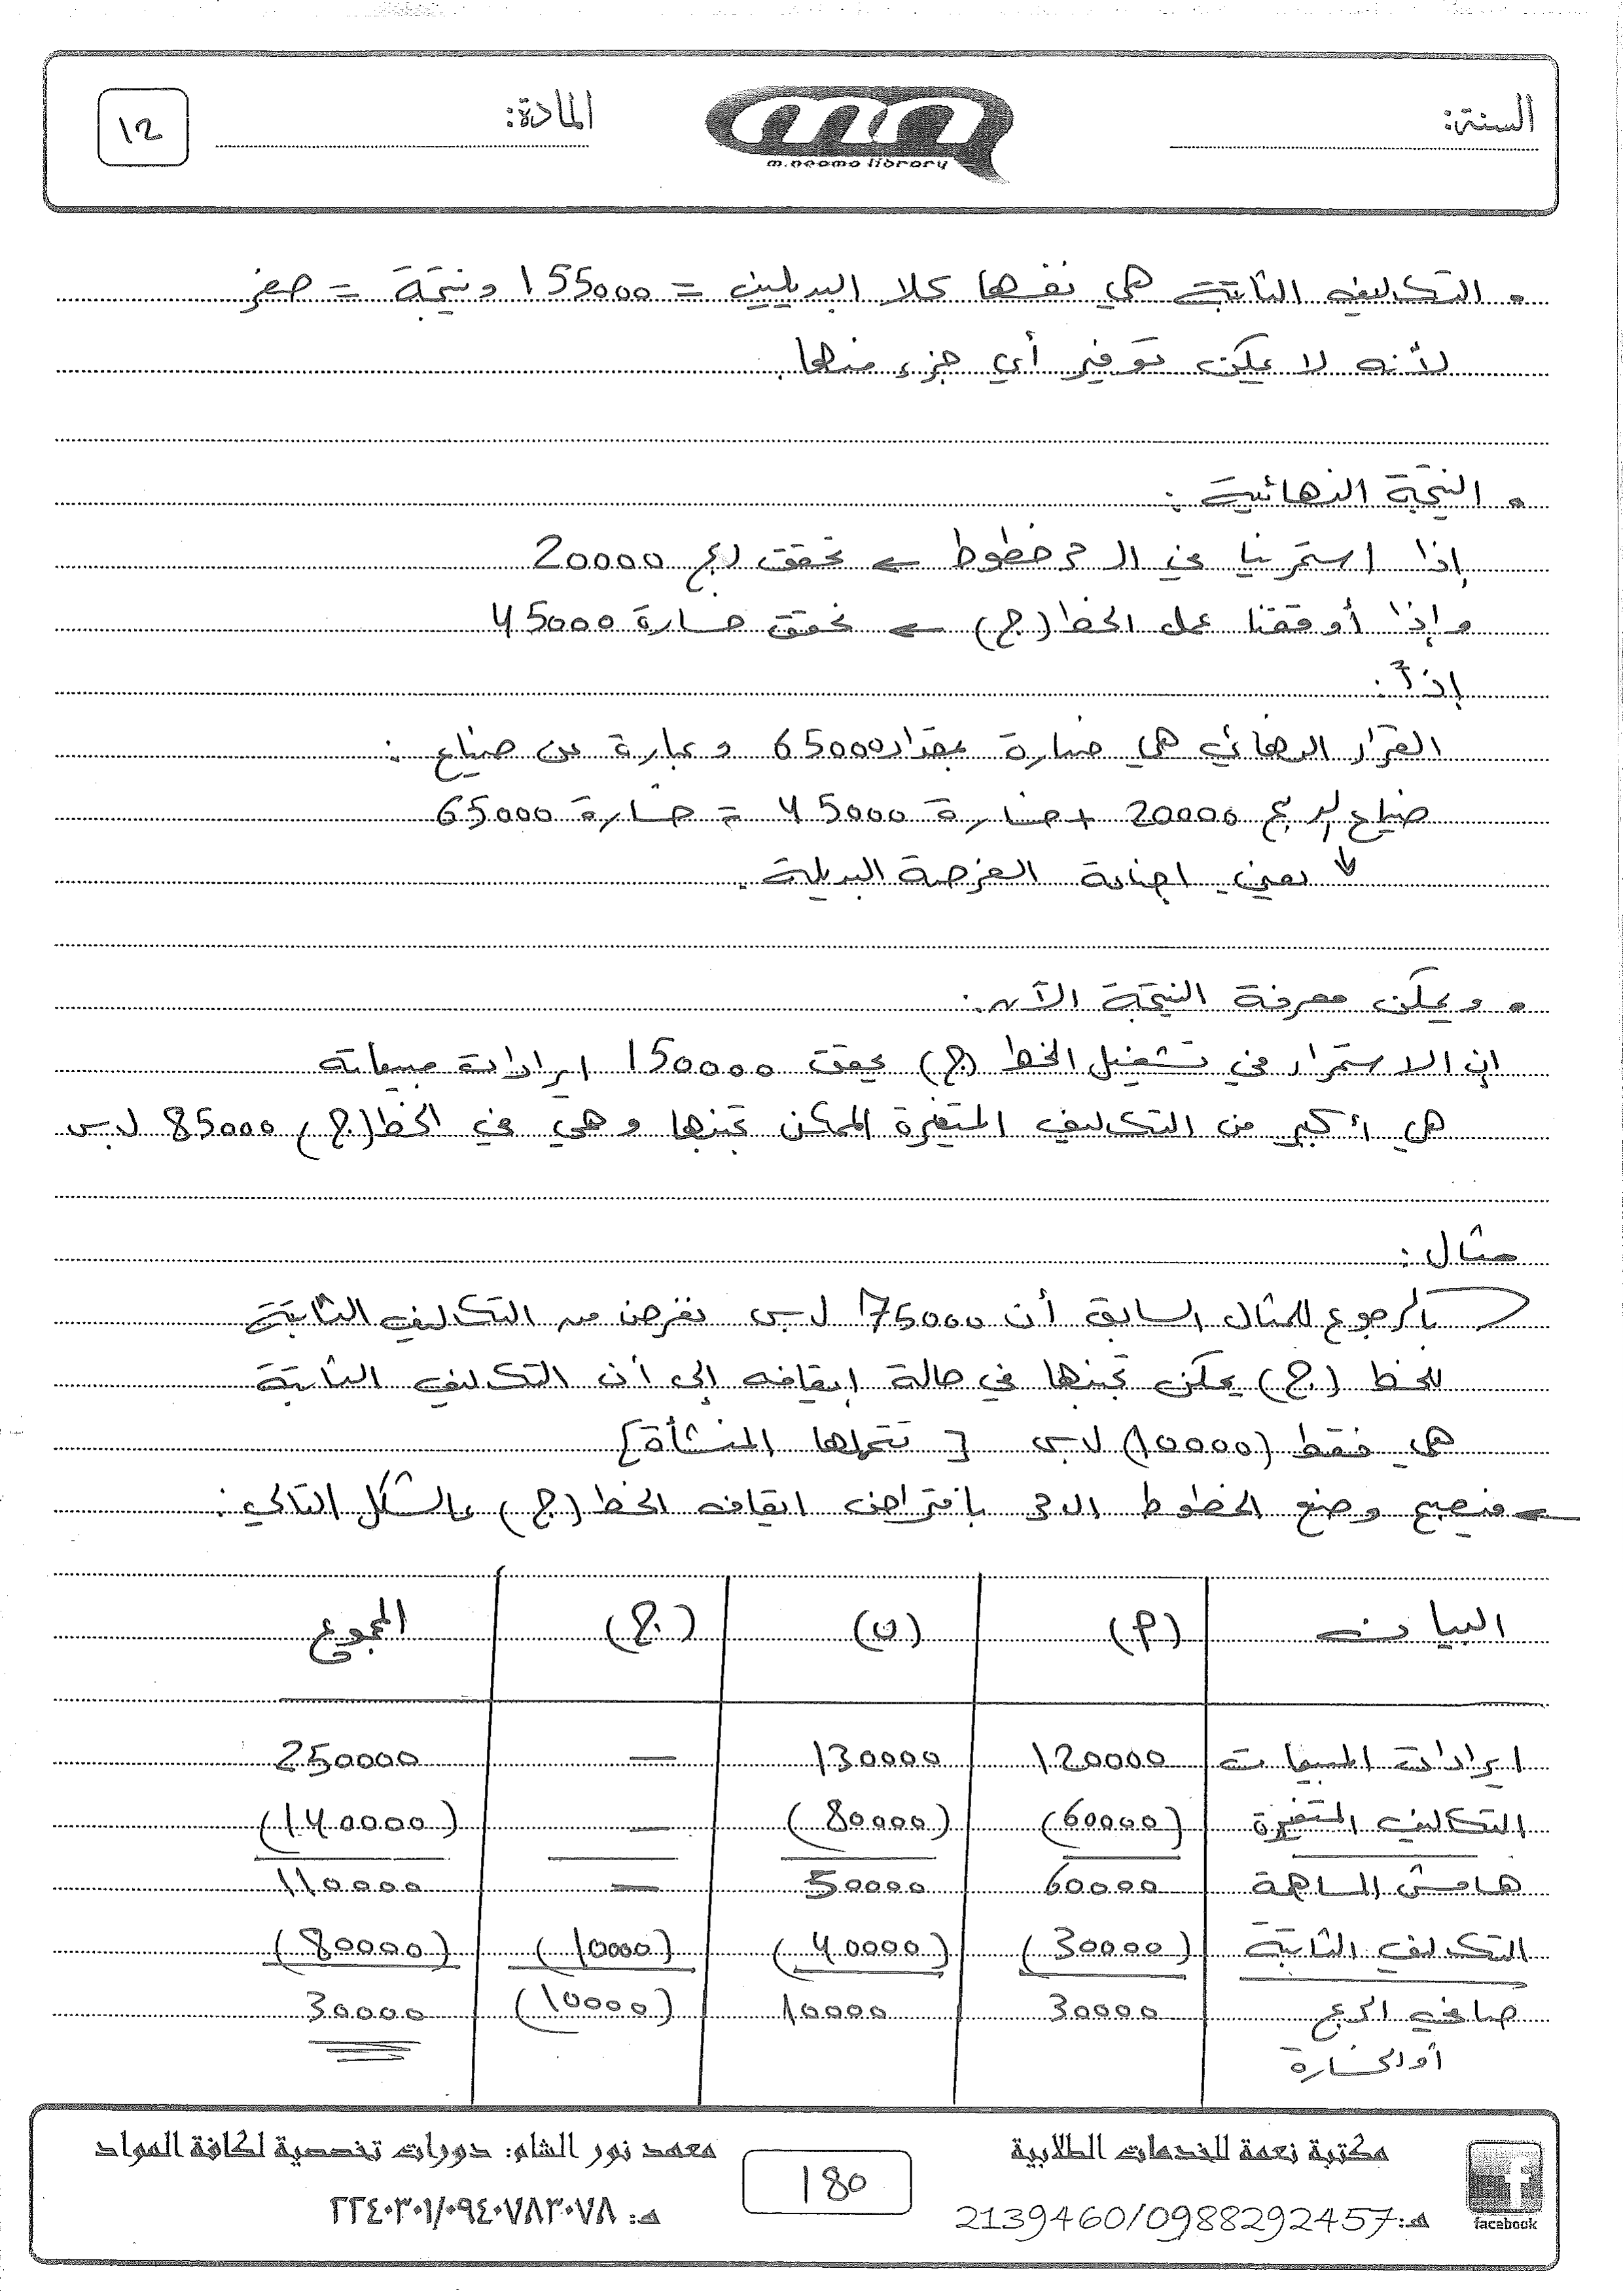 السنة:
المادة:
١٢
m.neama library
• التكاليف الثابتة هي نفسها بكلا البديلين = 155000 ونتيجة = صفر
لأنه لا يمكن توفير أي جزء منها.
• النتيجة النهائية:
إذا استمرينا في الـ 3 خطوط ← تحقق ربح 20000
وإذا أوقفنا عمل الخط (ج) ← تحقق خسارة 45000
إذاً:
القرار النهائي هي خسارة بمقدار 65000 وعبارة عن ضياع:
ضياع لربح 20000 + خسارة 45000 = خسارة 65000
↓ يعني اضاعة الفرصة البديلة.
• ويمكن معرفة النتيجة الآن:
ان الاستمرار في تشغيل الخط (ج) يحقق 150000 ايرادات مبيعاته
هي أكبر من التكاليف المتغيرة الممكن تجنبها وهي في الخط (ج) 85000 ل.س
مثال:
بالرجوع للمثال السابق أن 75000 ل.س نفرض من التكاليف الثابتة
للخط (ج) يمكن تجنبها في حالة إيقافه إلى أن التكاليف الثابتة
هي فقط (10000) ل.س [تتحملها المنشأة]
← فيصبح وضع الخطوط الـ 3 بافتراض ايقاف الخط (ج) بالشكل التالي:
البيانات (أ) (ب) (ج) المجموع
ايرادات المبيعات 120000 130000 — 250000
التكاليف المتغيرة (60000) (80000) — (140000)
هامش المساهمة 60000 50000 — 110000
التكاليف الثابتة (30000) (40000) (10000) (80000)
صافي الربح 30000 10000 (10000) 30000
أو الخسارة
facebook
مكتبة نعمة للخدمات الطلابية
هـ: 2139460/0988292457
180
معهد نور الشام: دورات تخصصية لكافة المواد
هـ: ٢٢٤٠٣٠١/٠٩٤٠٧٨٣٠٧٨